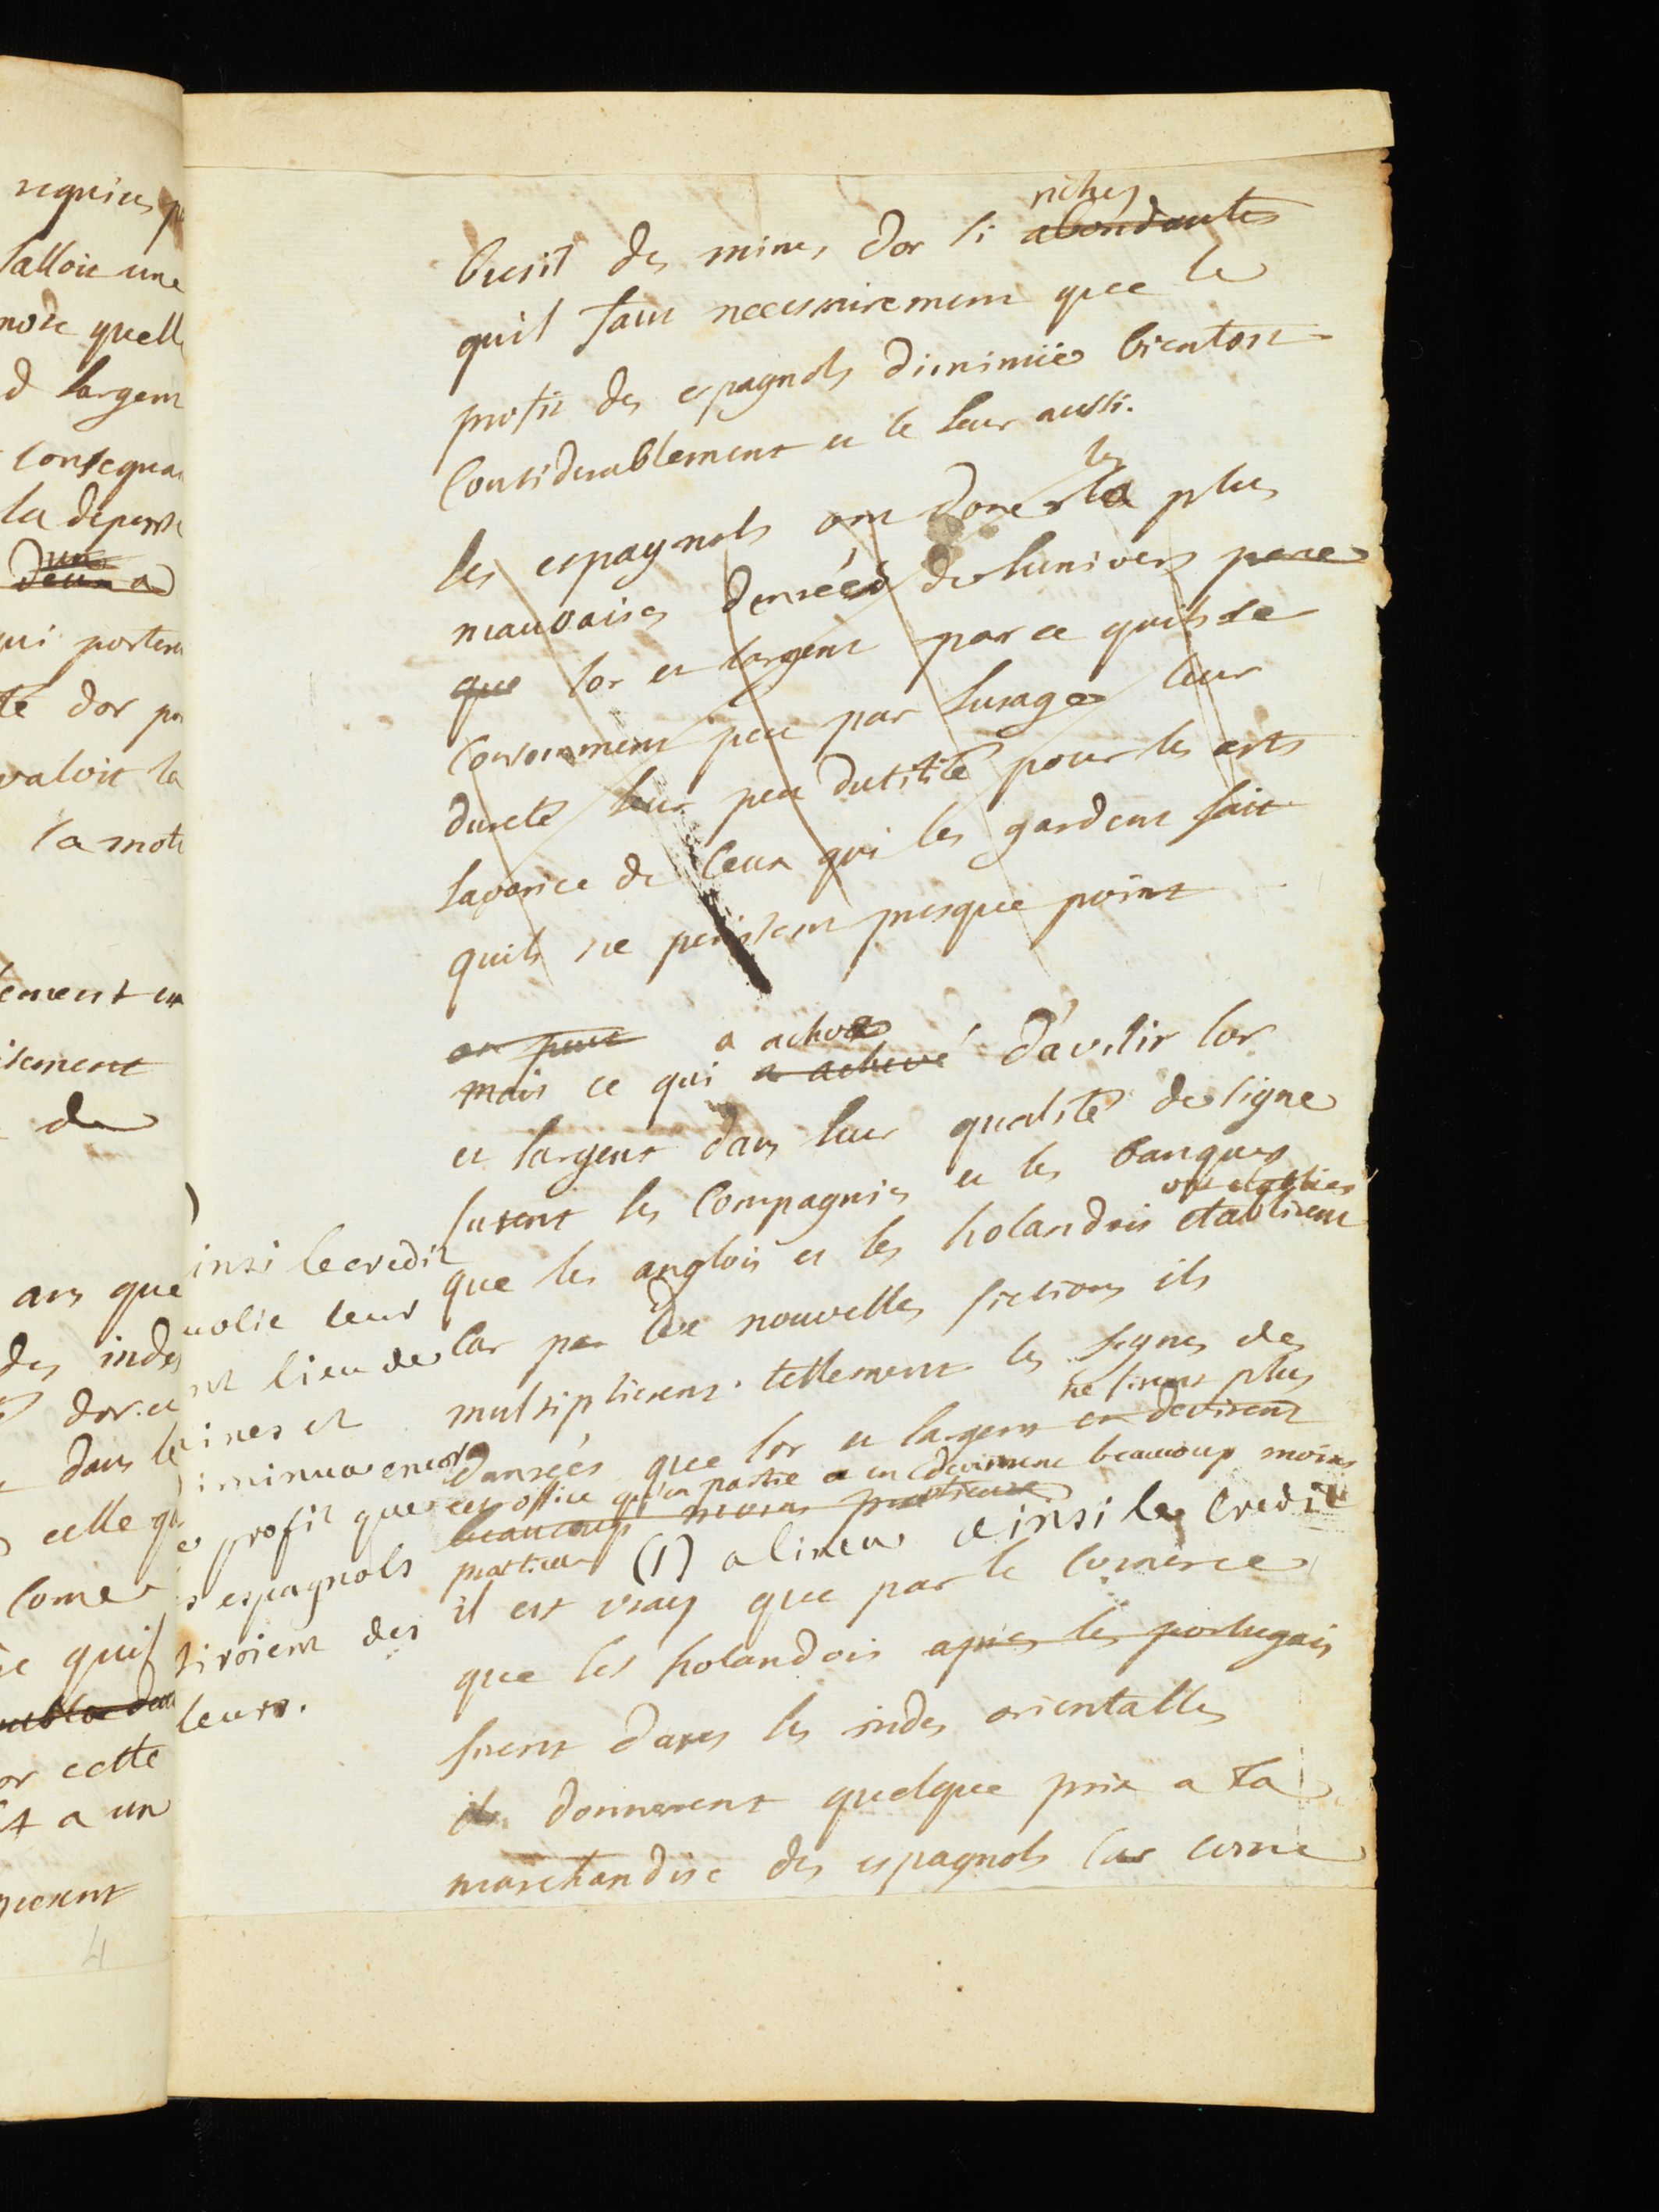 riches
bresil des mines dor si abondantes
quil faut necessairement que le
profit des espagnols diminüe bientost
considerablement et le leur aussi.
les
les espagnols ont donc la plus
mauvaises denrées de lunivers parce
que lor et largent par ce quils se
consomment peu par lusage leur
dureté leur peu dutilité pour les arts
lavarice de ceux qui les gardent fait
quils ne perissent presque point
on peut a achevé
mais ce qui a achevé d'avilir lor
et largent dans leur qualité de signe
furent les compagnies et les banques
ont etablies
que les anglois et les holandois etablirent
car par de nouvelles fictions ils
multiplierent tellement les signes des
ne firent plus
danrées que lor et largent en devinrent
cet office qu'en partie et en devinrent beaucoup moins
beaucoup moins pretieux
pretieux (1) a linea ainsi le credit
il est vray que par le comerce
que les holandois apres les portugais
firent dans les indes orientalles
ils donnerent quelque prix a la
marchandise des espagnols car come
)
insi le credit
nolie leur
nt lieu de
ines et
iminua encor
e profit que
s espagnols
tiroient des
leurs.
falloit une
d largent
la depense
dun
deux a
qui portent
té dor
valoit la
ement en
isement
de
ans que
des indes
dor et
dans le
celle
come
quil
or cette
a un
4